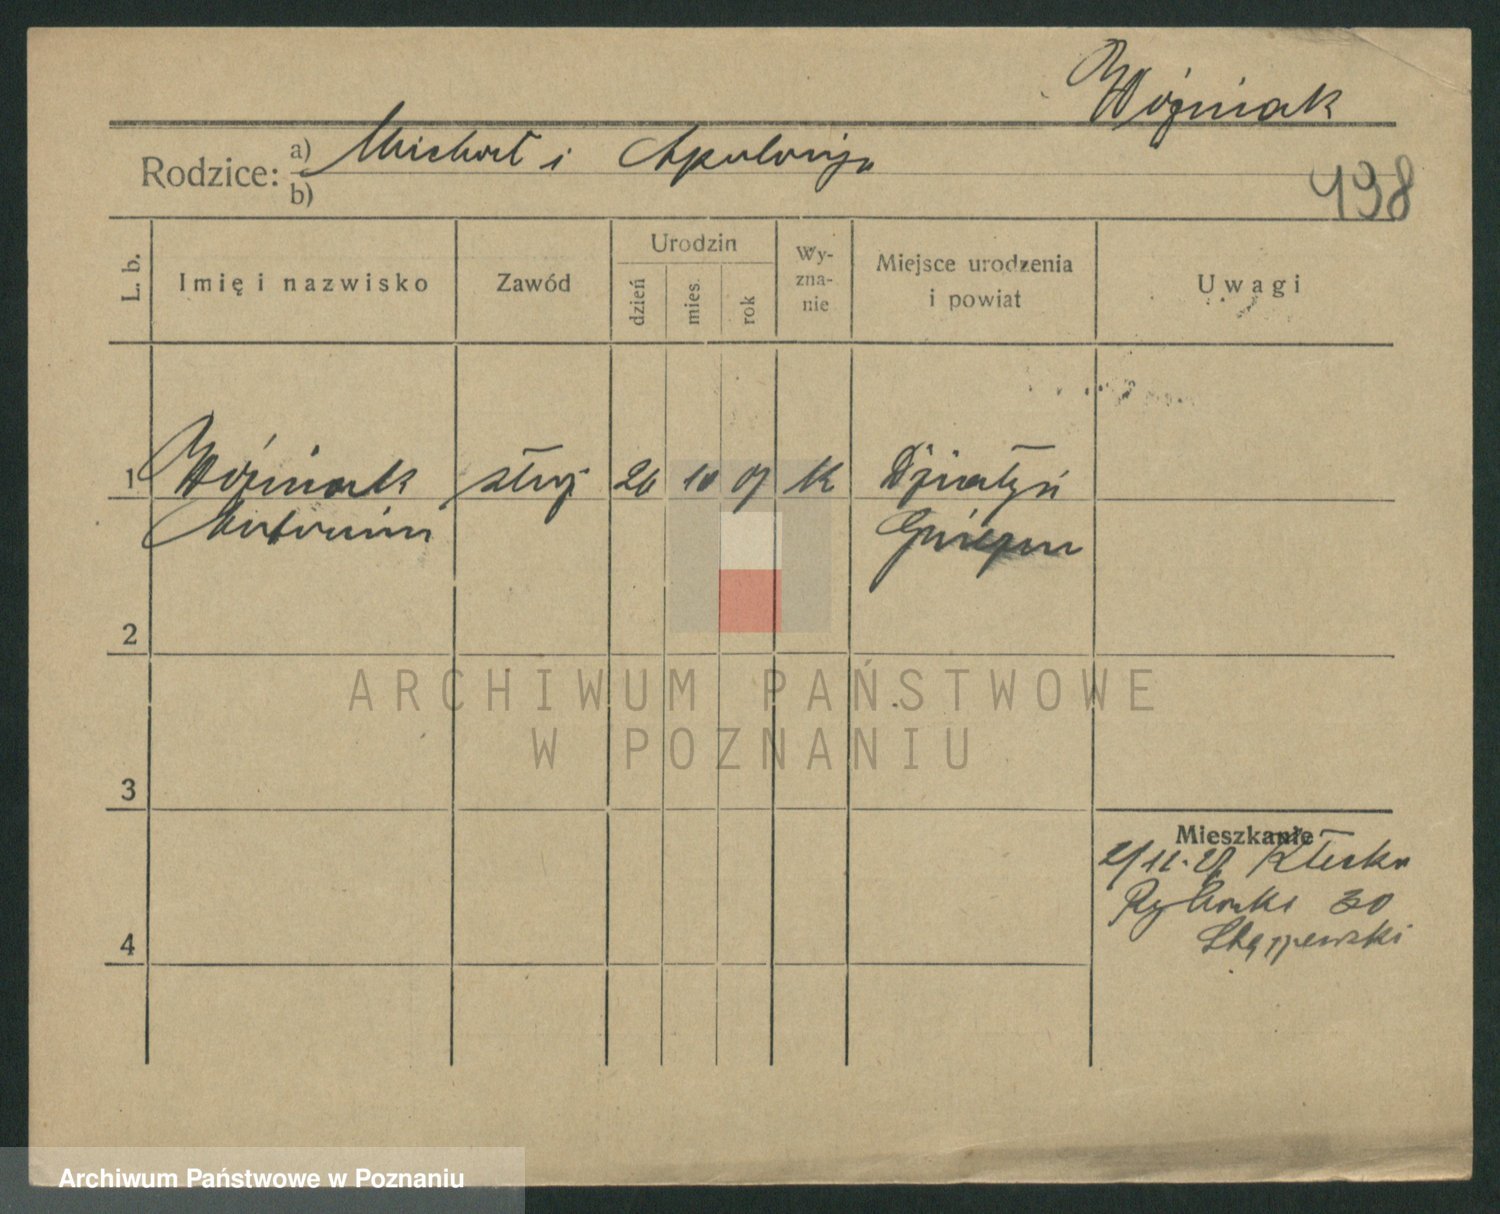 Woźniak
Rodzice: a) Michał i Apolonja
b)
498
L. b.
Imię i nazwisko
Zawód
Urodzin
dzień
mies.
rok
Wy-
zna-
nie
Miejsce urodzenia
i powiat
Uwagi
1 Woźniak służ 20 10 07 k Działyń
Antonina Gniezno
2
3
4
Mieszkanie
2/11.27 Kłecka
Rybacki 30
ARCHIWUM PAŃSTWOWE
W POZNANIU
Archiwum Państwowe w Poznaniu